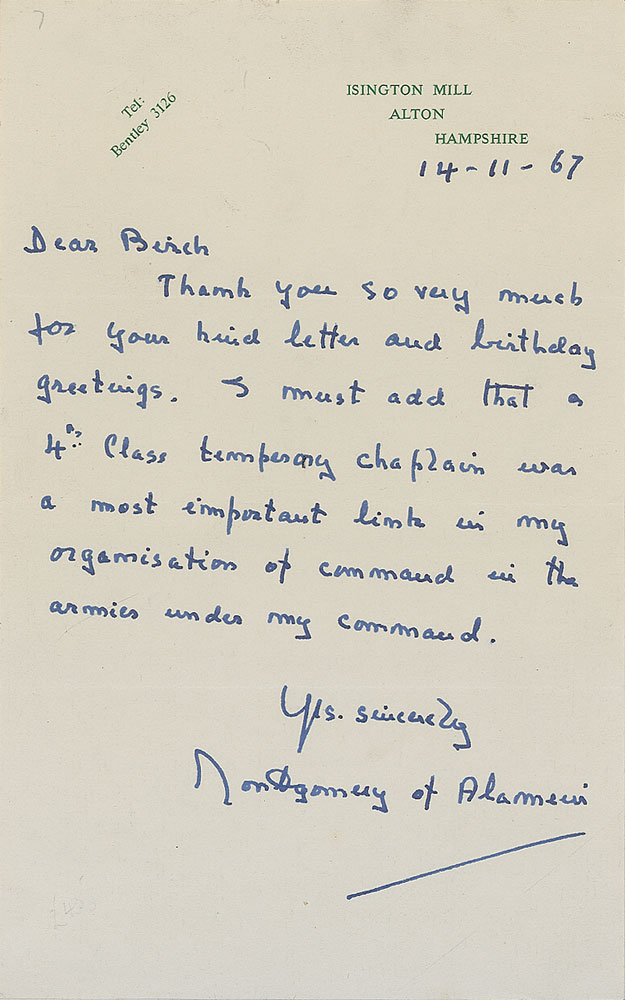 7
Tel:
Bentley 3126
ISINGTON MILL
ALTON
HAMPSHIRE
14-11-67
Dear Birch
Thank you so very much
for your kind letter and birthday
greetings. I must add that a
4th Class temporary chaplain was
a most important link in my
organisation of command in the
armies under my command.
Yrs. sincerely
Montgomery of Alamein